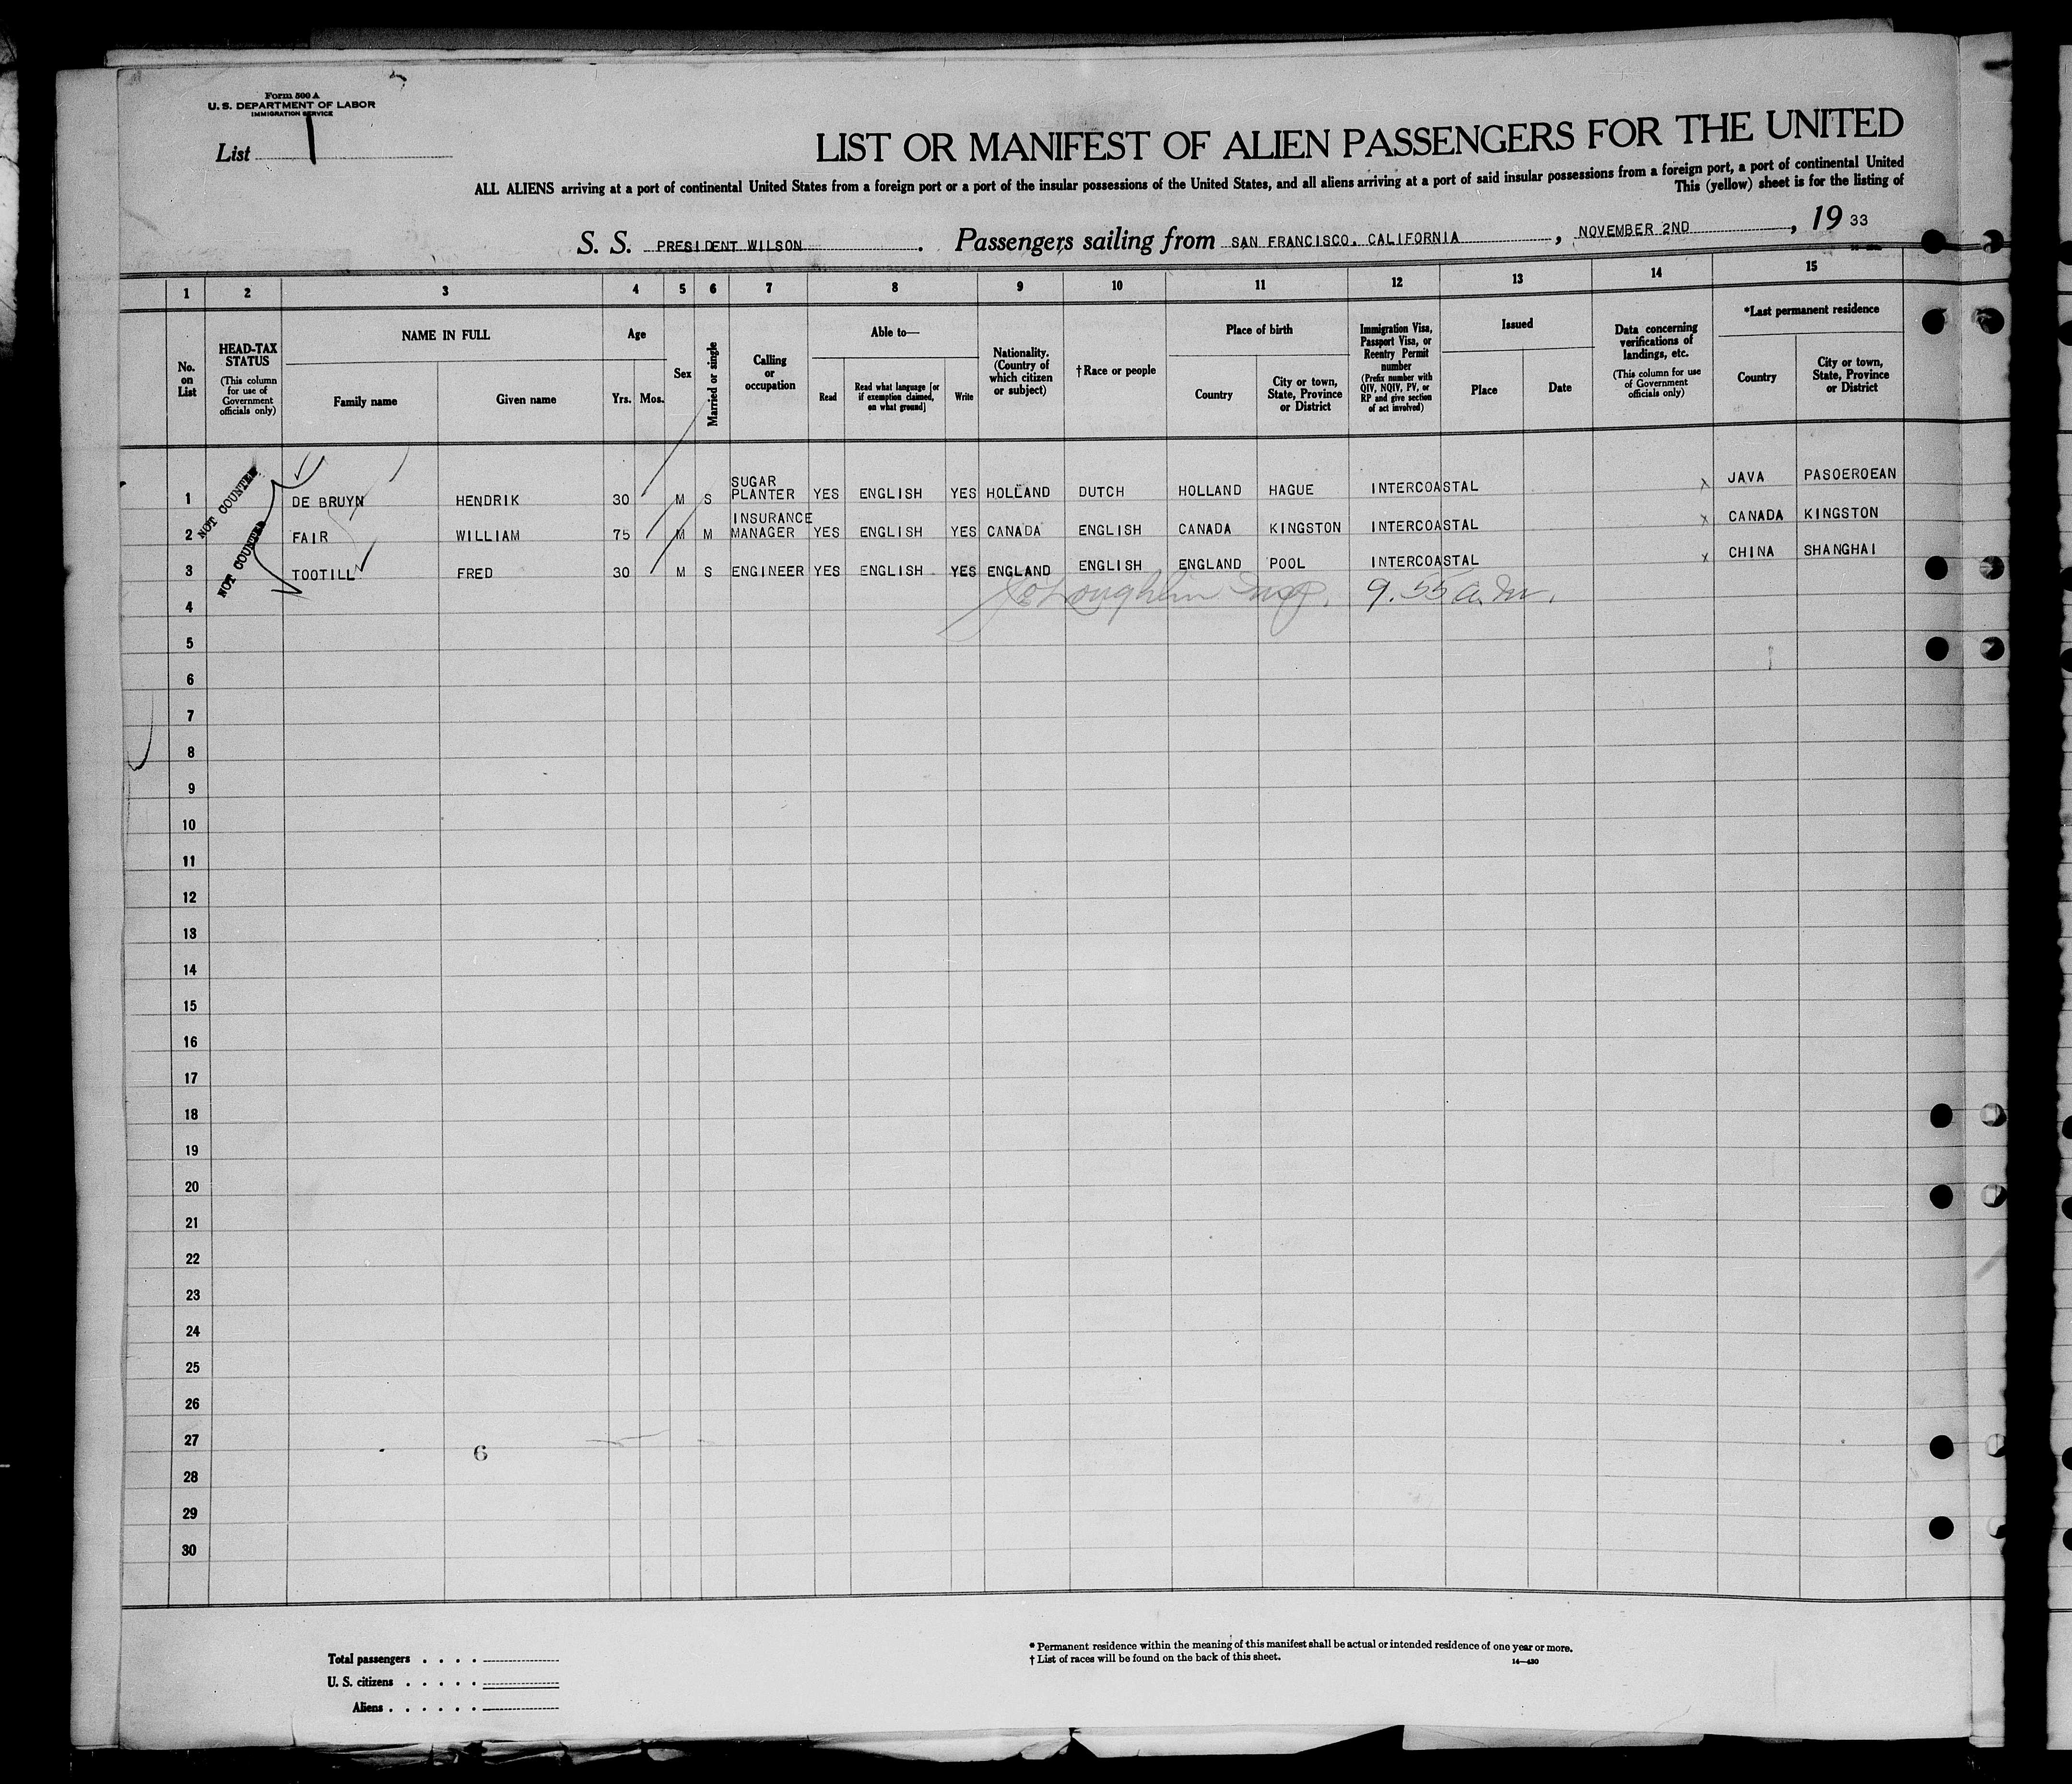 Form 500 A
U. S. DEPARTMENT OF LABOR
IMMIGRATION SERVICE
List 1
LIST OR MANIFEST OF ALIEN PASSENGERS FOR THE UNITED
ALL ALIENS arriving at a port of continental United States from a foreign port or a port of the insular possessions of the United States, and all aliens arriving at a port of said insular possessions from a foreign port, a port of continental United
This (yellow) sheet is for the listing of
S. S. PRESIDENT WILSON. Passengers sailing from SAN FRANCISCO, CALIFORNIA, NOVEMBER 2ND, 19 33
1 2 3 4 5 6 7 8 9 10 11 12 13 14 15
No. on List
HEAD-TAX STATUS (This column for use of Government officials only)
NAME IN FULL
Family name Given name
Age
Yrs. Mos.
Sex
Married or single
Calling or occupation
Able to—
Read Read what language [or if exemption claimed, on what ground] Write
Nationality. (Country of which citizen or subject)
†Race or people
Place of birth
Country City or town, State, Province or District
Immigration Visa, Passport Visa, or Reentry Permit number (Prefix number with QIV, NQIV, PV, or RP and give section of act involved)
Issued
Place Date
Data concerning verifications of landings, etc. (This column for use of Government officials only)
*Last permanent residence
Country City or town, State, Province or District
NOT COUNTED
1 DE BRUYN HENDRIK 30 M S SUGAR PLANTER YES ENGLISH YES HOLLAND DUTCH HOLLAND HAGUE INTERCOASTAL x JAVA PASOEROEAN
2 FAIR WILLIAM 75 M M INSURANCE MANAGER YES ENGLISH YES CANADA ENGLISH CANADA KINGSTON INTERCOASTAL x CANADA KINGSTON
NOT COUNTED
3 TOOTILL FRED 30 M S ENGINEER YES ENGLISH YES ENGLAND ENGLISH ENGLAND POOL INTERCOASTAL x CHINA SHANGHAI
4 9.55 a.m.
5
6
7
8
9
10
11
12
13
14
15
16
17
18
19
20
21
22
23
24
25
26
27
6
28
29
30
Total passengers
U. S. citizens
Aliens
* Permanent residence within the meaning of this manifest shall be actual or intended residence of one year or more.
† List of races will be found on the back of this sheet.
14—430